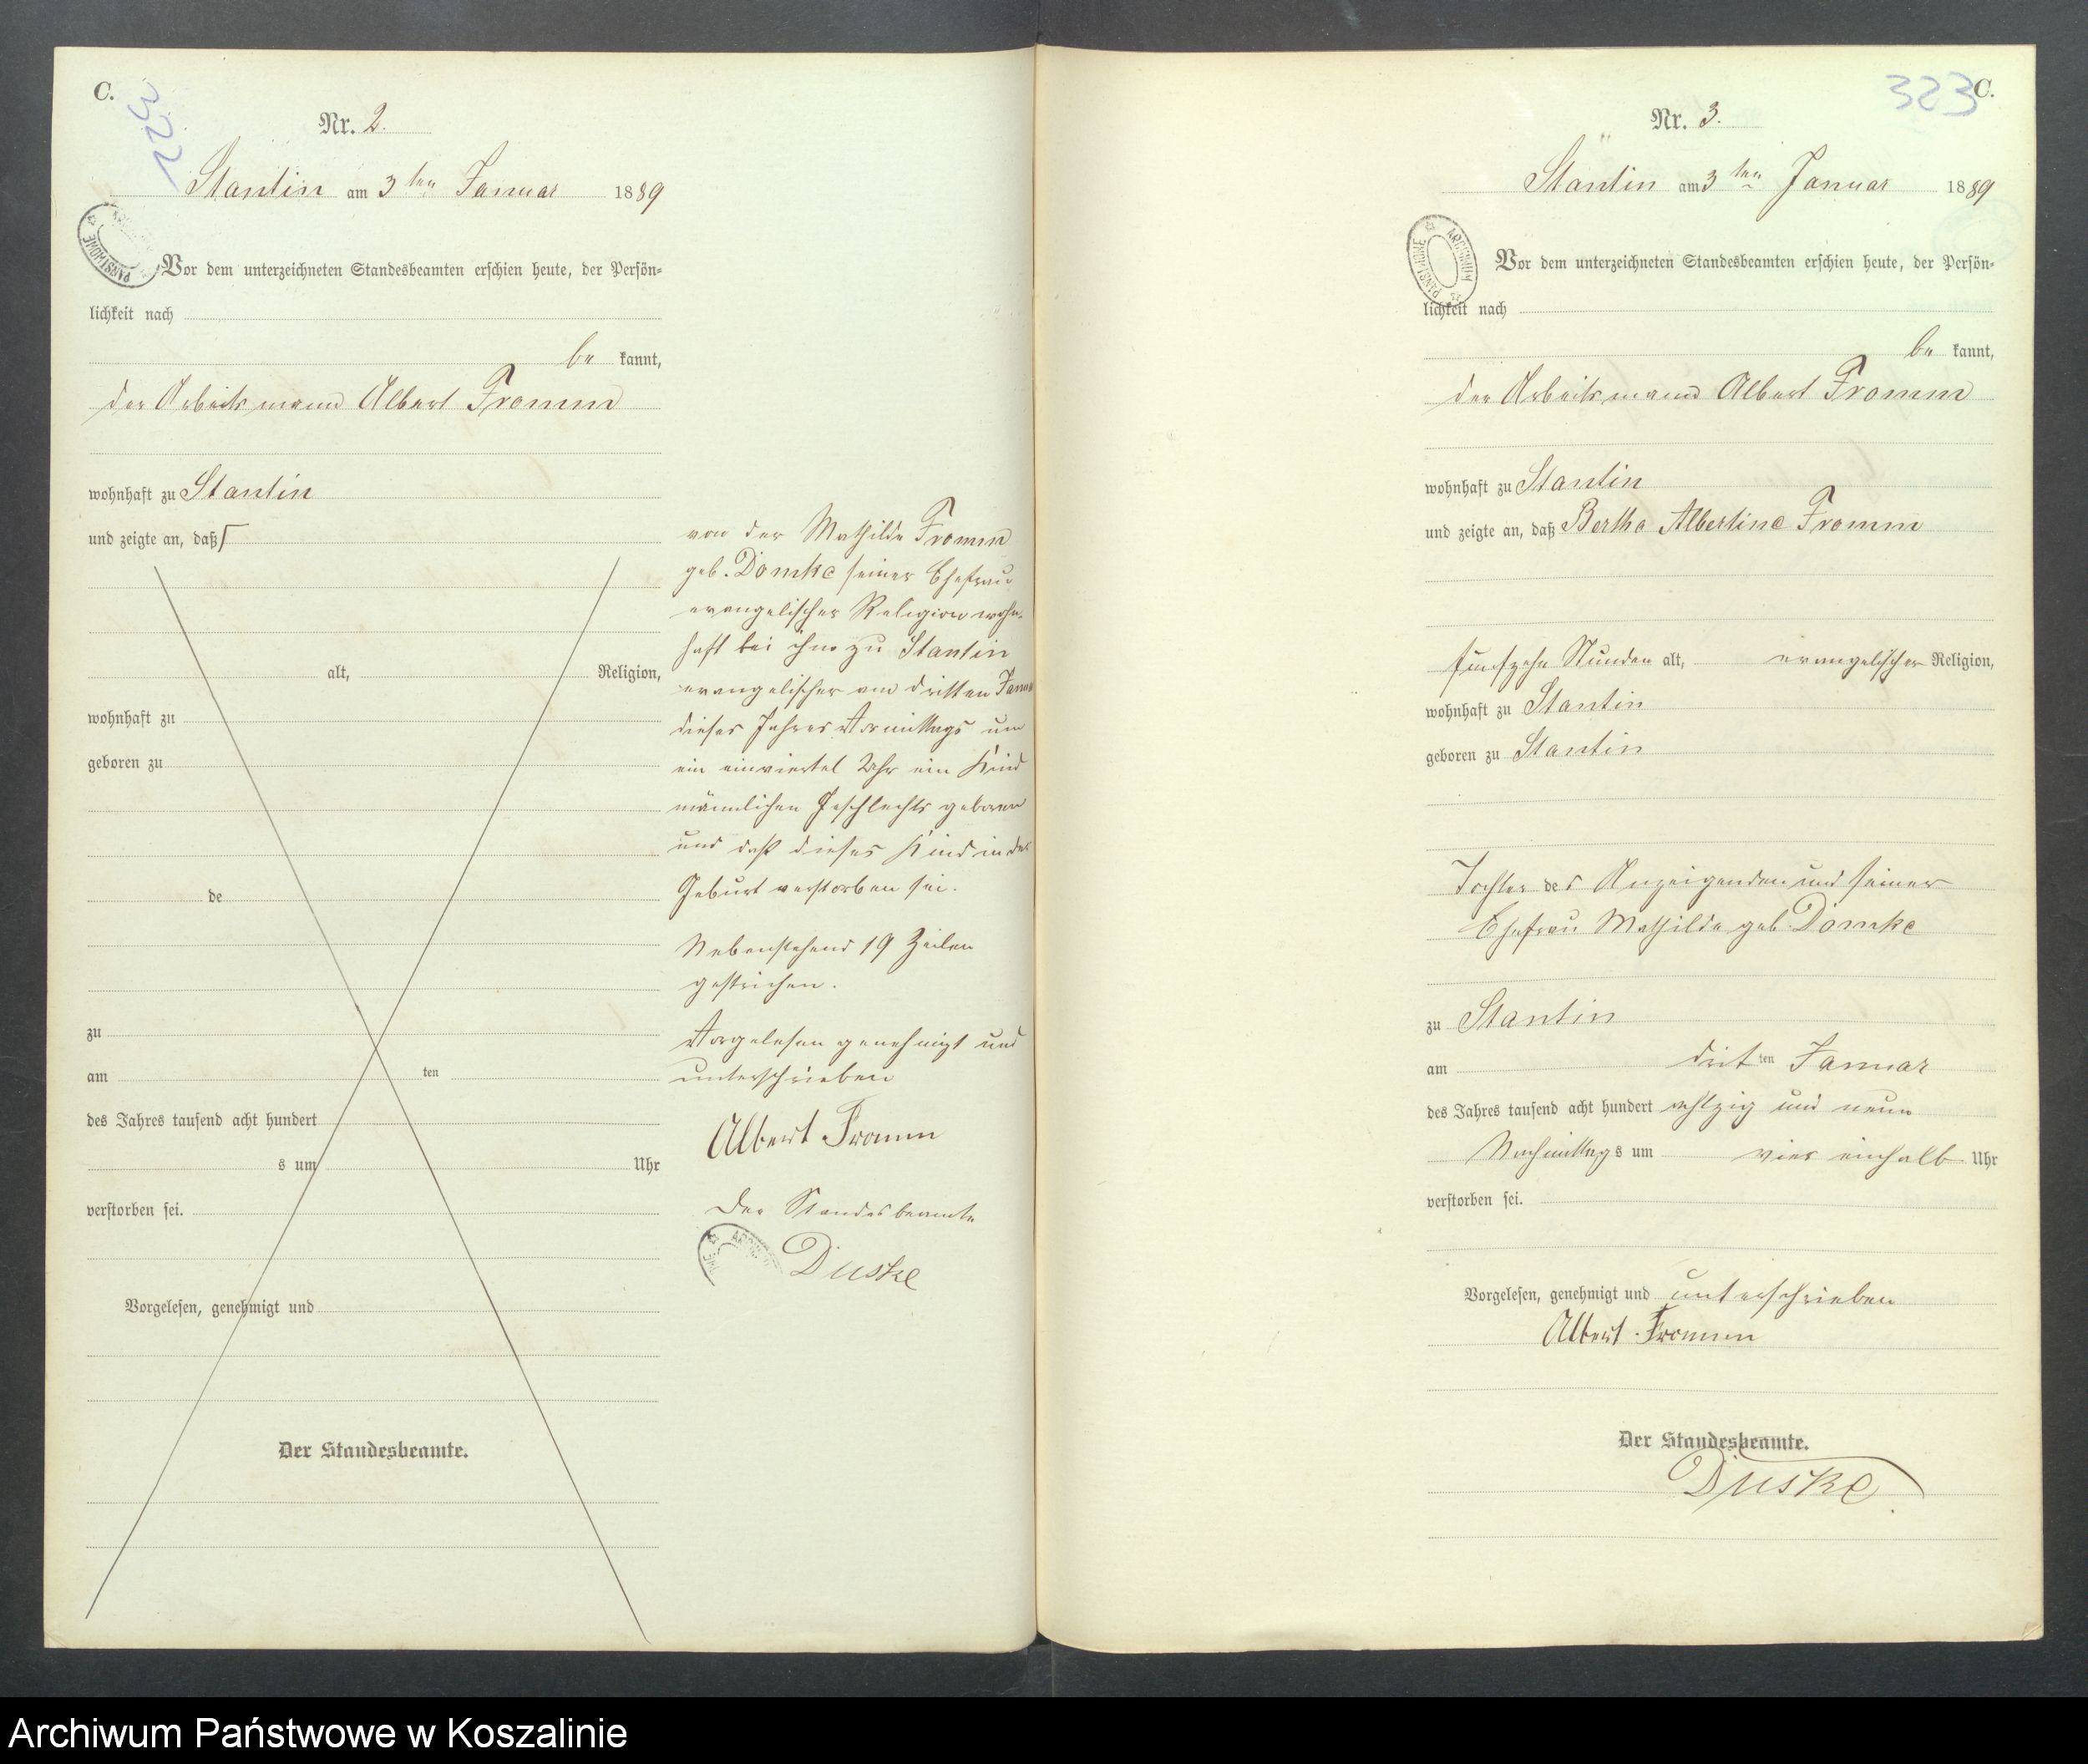 C.
322
Nr. 2.
Stantin am 3ten Januar 1889
Vor dem unterzeichneten Standesbeamten erschien heute, der Persön-
lichkeit nach
be kannt,
der Arbeitsmann Albert Fromm
wohnhaft zu Stantin
und zeigte an, daß
alt, Religion,
wohnhaft zu
geboren zu
de
zu
am ten
des Jahres tausend acht hundert
s um Uhr
verstorben sei.
Vorgelesen, genehmigt und
Der Standesbeamte.
von der Mathilde Fromm
geb. Domke seiner Ehefrau
evangelischer Religion wohn-
haft bei ihm zu Stantin
evangelischer am dritten Janua
dieses Jahres Vormittags um
ein einviertel Uhr ein Kind
männlichen Geschlechts geboren
und daß dieses Kind in der
Geburt verstorben sei.
Nebenstehend 19 Zeilen
gestrichen.
Vorgelesen genehmigt und
unterschrieben
Albert Fromm
Der Standesbeamte
Duske
323 C.
Nr. 3.
Stantin am 3ten Januar 1889
ARCHIWUM PAŃSTWOWE
Vor dem unterzeichneten Standesbeamten erschien heute, der Persön-
lichkeit nach
be kannt,
der Arbeitsmann Albert Fromm
wohnhaft zu Stantin
und zeigte an, daß Bertha Albertine Fromm
funfzehn Stunden alt, evangelischer Religion,
wohnhaft zu Stantin
geboren zu Stantin
Tochter des Anzeigenden und seiner
Ehefrau Mathilde geb. Domke
zu Stantin
am dritten Januar
des Jahres tausend acht hundert achtzig und neun
Nachmittags um vier einhalb Uhr
verstorben sei.
Vorgelesen, genehmigt und unterschrieben
Albert Fromm
Der Standesbeamte.
Duske
Archiwum Państwowe w Koszalinie